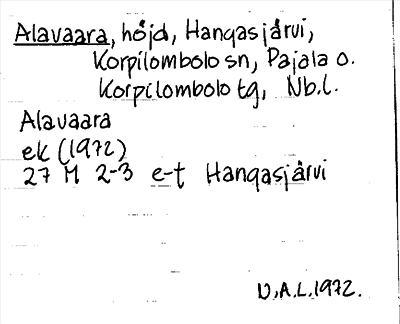 Alavaara, höjd, Hangasjärvi,
Korpilombolo sn, Pajala o.
Korpilombolo tg, Nb.l.
Alavaara
ek (1972)
27 M 2-3 e-t Hangasjärvi
D.A.L. 1972.